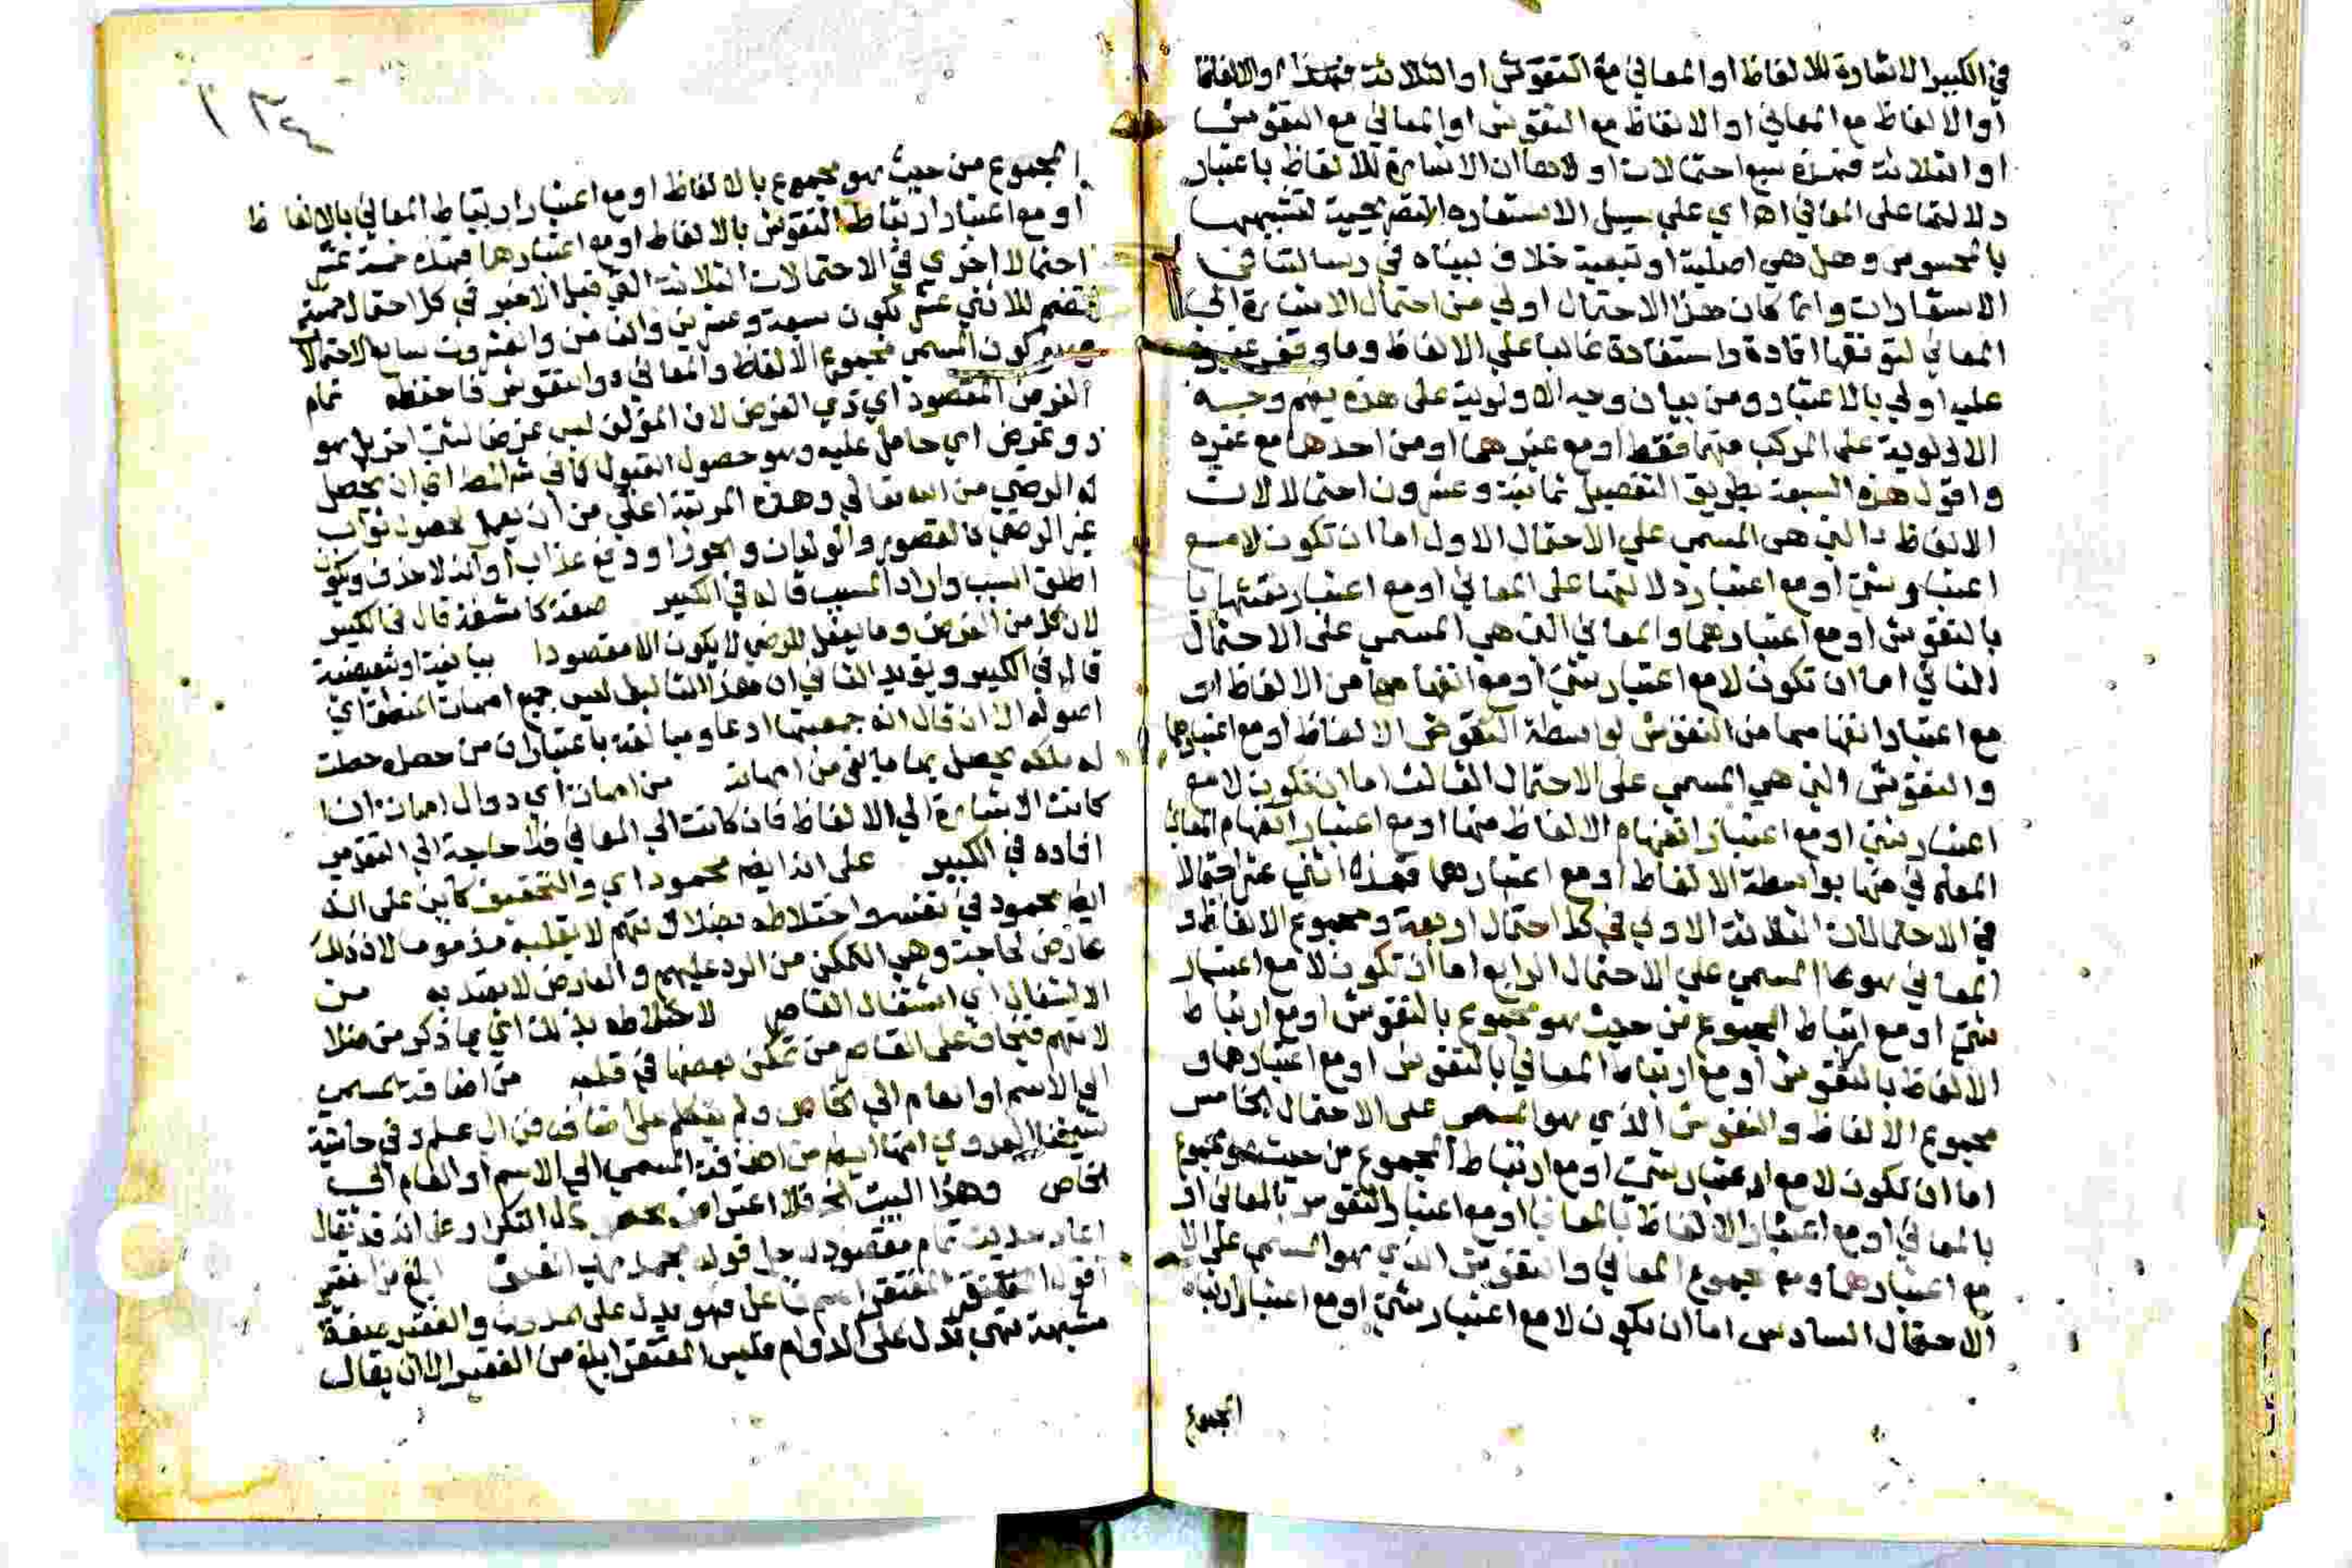 في الكبير الاشارة للالفاظ او المعاني مع النقوش او الثلاثة او الالفاظ
او الالفاظ مع المعاني او الالفاظ مع النقوش او المعاني مع النقوش
او الثلاثة فهذه سبع احتمالات اولاها ان الاشارة للالفاظ باعتبار
دلالتها على المعاني اه اي على سبيل الاستعارة التصريحية لتشبيهها
بالمحسوس وهل هي اصلية او تبعية خلاف بيناه في رسالتنا في
الاستعارات وانما كان هذا الاحتمال اولى من احتمال الاشارة الى
المعاني لتوقفها افادة واستفادة غالبا على الالفاظ وما وقف غيره
عليه اولى بالاعتبار ومن بيان وجه الاولوية على هذه يفهم وجه
الاولوية على المركب منهما فقط او مع غيرهما او من احدهما مع غيره
واقول هذه السبعة بطريق التفصيل ثمانية وعشرون احتمالا لان
الالفاظ التي هي المسمى على الاحتمال الاول اما ان تكون لا مع
اعتبار شئ او مع اعتبار دلالتها على المعاني او مع اعتبار
بالنقوش او مع اعتبارهما والمعاني التي هي المسمى على الاحتمال
الثاني اما ان تكون لا مع اعتبار شئ او مع انفهامها من الالفاظ او
مع اعتبار انفهامها من النقوش بواسطة النقوش الالفاظ او مع اعتبارهما
والنقوش التي هي المسمى على الاحتمال الثالث اما ان تكون لا مع
اعتبار شئ او مع اعتبار انفهام الالفاظ منها او مع اعتبار انفهام المعاني
المعاني منها بواسطة الالفاظ او مع اعتبارهما فهذه اثنى عشر احتمالا
في الاحتمالات الثلاثة الاولى في كل احتمال اربعة ومجموع الالفاظ و
المعاني هو المسمى على الاحتمال الرابع اما ان تكون لا مع اعتبار
شئ او مع ارتباط المجموع من حيث هو مجموع بالنقوش او مع ارتباط
الالفاظ بالنقوش او مع ارتباط المعاني بالنقوش او مع اعتبارهما و
مجموع الالفاظ والنقوش الذي هو المسمى على الاحتمال الخامس
اما ان تكون لا مع اعتبار شئ او مع ارتباط المجموع من حيث هو مجموع
بالمعاني او مع اعتبار الالفاظ بالمعاني او مع اعتبار النقوش بالمعاني او
مع اعتبارهما ومجموع المعاني والنقوش الذي هو المسمى على
الاحتمال السادس اما ان تكون لا مع اعتبار شئ او مع اعتبار ارتباط
المجموع
١٣٤
المجموع من حيث هو مجموع بالالفاظ او مع اعتبار ارتباط المعاني بالالفاظ
او مع اعتبار ارتباط النقوش بالالفاظ او مع اعتبارهما فهذه خمسة عشر
احتمالا اخرى في الاحتمالات الثلاثة التي قبل الاخير في كل احتمال خمسة
تضم للاثني عشر تكون سبعة وعشرين والثامن والعشرون سابع الاحتمالات
كون المسمى مجموع الالفاظ والمعاني والنقوش فاحفظه تمام
الغرض المقصود اي ذي الغرض لان المؤلف ليس غرضا لشئ اخر بل هو
ذو غرض اي حامل عليه وهو حصول القبول كما في اي ان يحصل
له الرضى من الله تعالى وهذه المرتبة اعلى من ان يعمل لحصول ثواب
غير الرضى كالقصور والولدان والحور او دفع عذاب او انه لا حذف ويكون
اطلق السبب واراد المسبب قاله في الكبير صفة كاشفة قال في الكبير
لان كل من الغرض وما يفعل للرضى لا يكون الا مقصودا بيانية او تبعيضية
قال في الكبير ويؤيد الثاني ان هذا التأليف ليس جميع امهات المنطق اي
اصوله الا ان قال انه جمعيتها ادعا ومبالغة باعتبار ان من حصله حصلت
له ملكة يحصل بها ما بقي من امهاته من امهات اي دوال امهات ان
كانت الاشارة الى الالفاظ فان كانت الى المعاني فلا حاجة الى التقدير
افاده في الكبير على انه ايضا محمود اي والتحقيق كاين على انه
ايضا محمود في نفسه واختلاطه بضلالاتهم لا يقلبه مذموما لان ذلك
عارض لحاجة وهي التمكن من الرد عليهم والعارض لا يعتد به من
الاشتغال اي اشتغال القاصر لاختلاطه بذلك اي بما ذكر من ضلا
لاتهم فيخاف على القاصر من تمكن بعضها في قلبه من اضافة المسمى
الى الاسم او العام الى الخاص ولم يتكلم على اضافة فن الى علم وفي حاشية
شيخنا العدوي انها ايضا من اضافة المسمى الى الاسم او العام الى
الخاص وهذا البيت الخ فلا اعتراض على انه قد يقال
تمام مقصوده حل قوله ابلغ من الفقير
اقول المفتقر اسم فاعل فهو يدل على الحدوث والفقير صفة
مشبهة فهي تدل على الدوام فليس المفتقر ابلغ من الفقير الا ان يقال